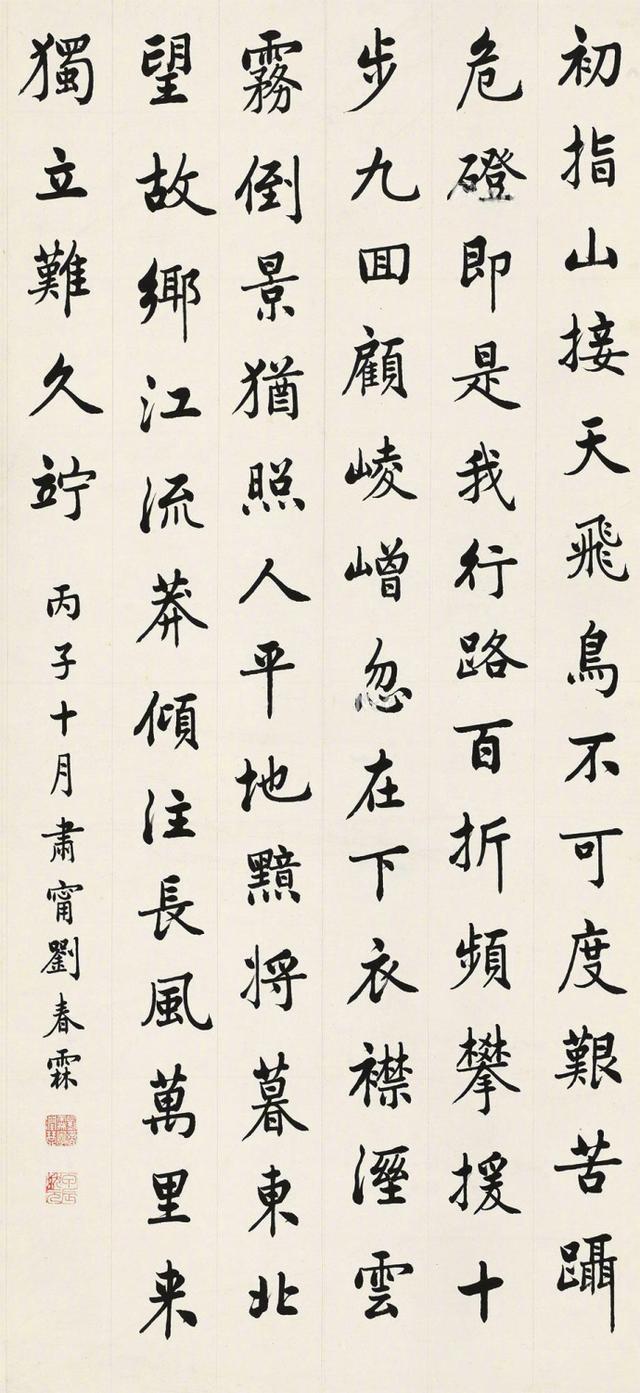 初指山接天飛鳥不可度艱苦躡
危磴即是我行路百折頻攀援十
步九回顧崚嶒忽在下衣襟溼雲
霧倒景猶照人平地黯將暮東北
望故鄉江流莽傾注長風萬里来
獨立難久竚
丙子十月肅甯劉春霖